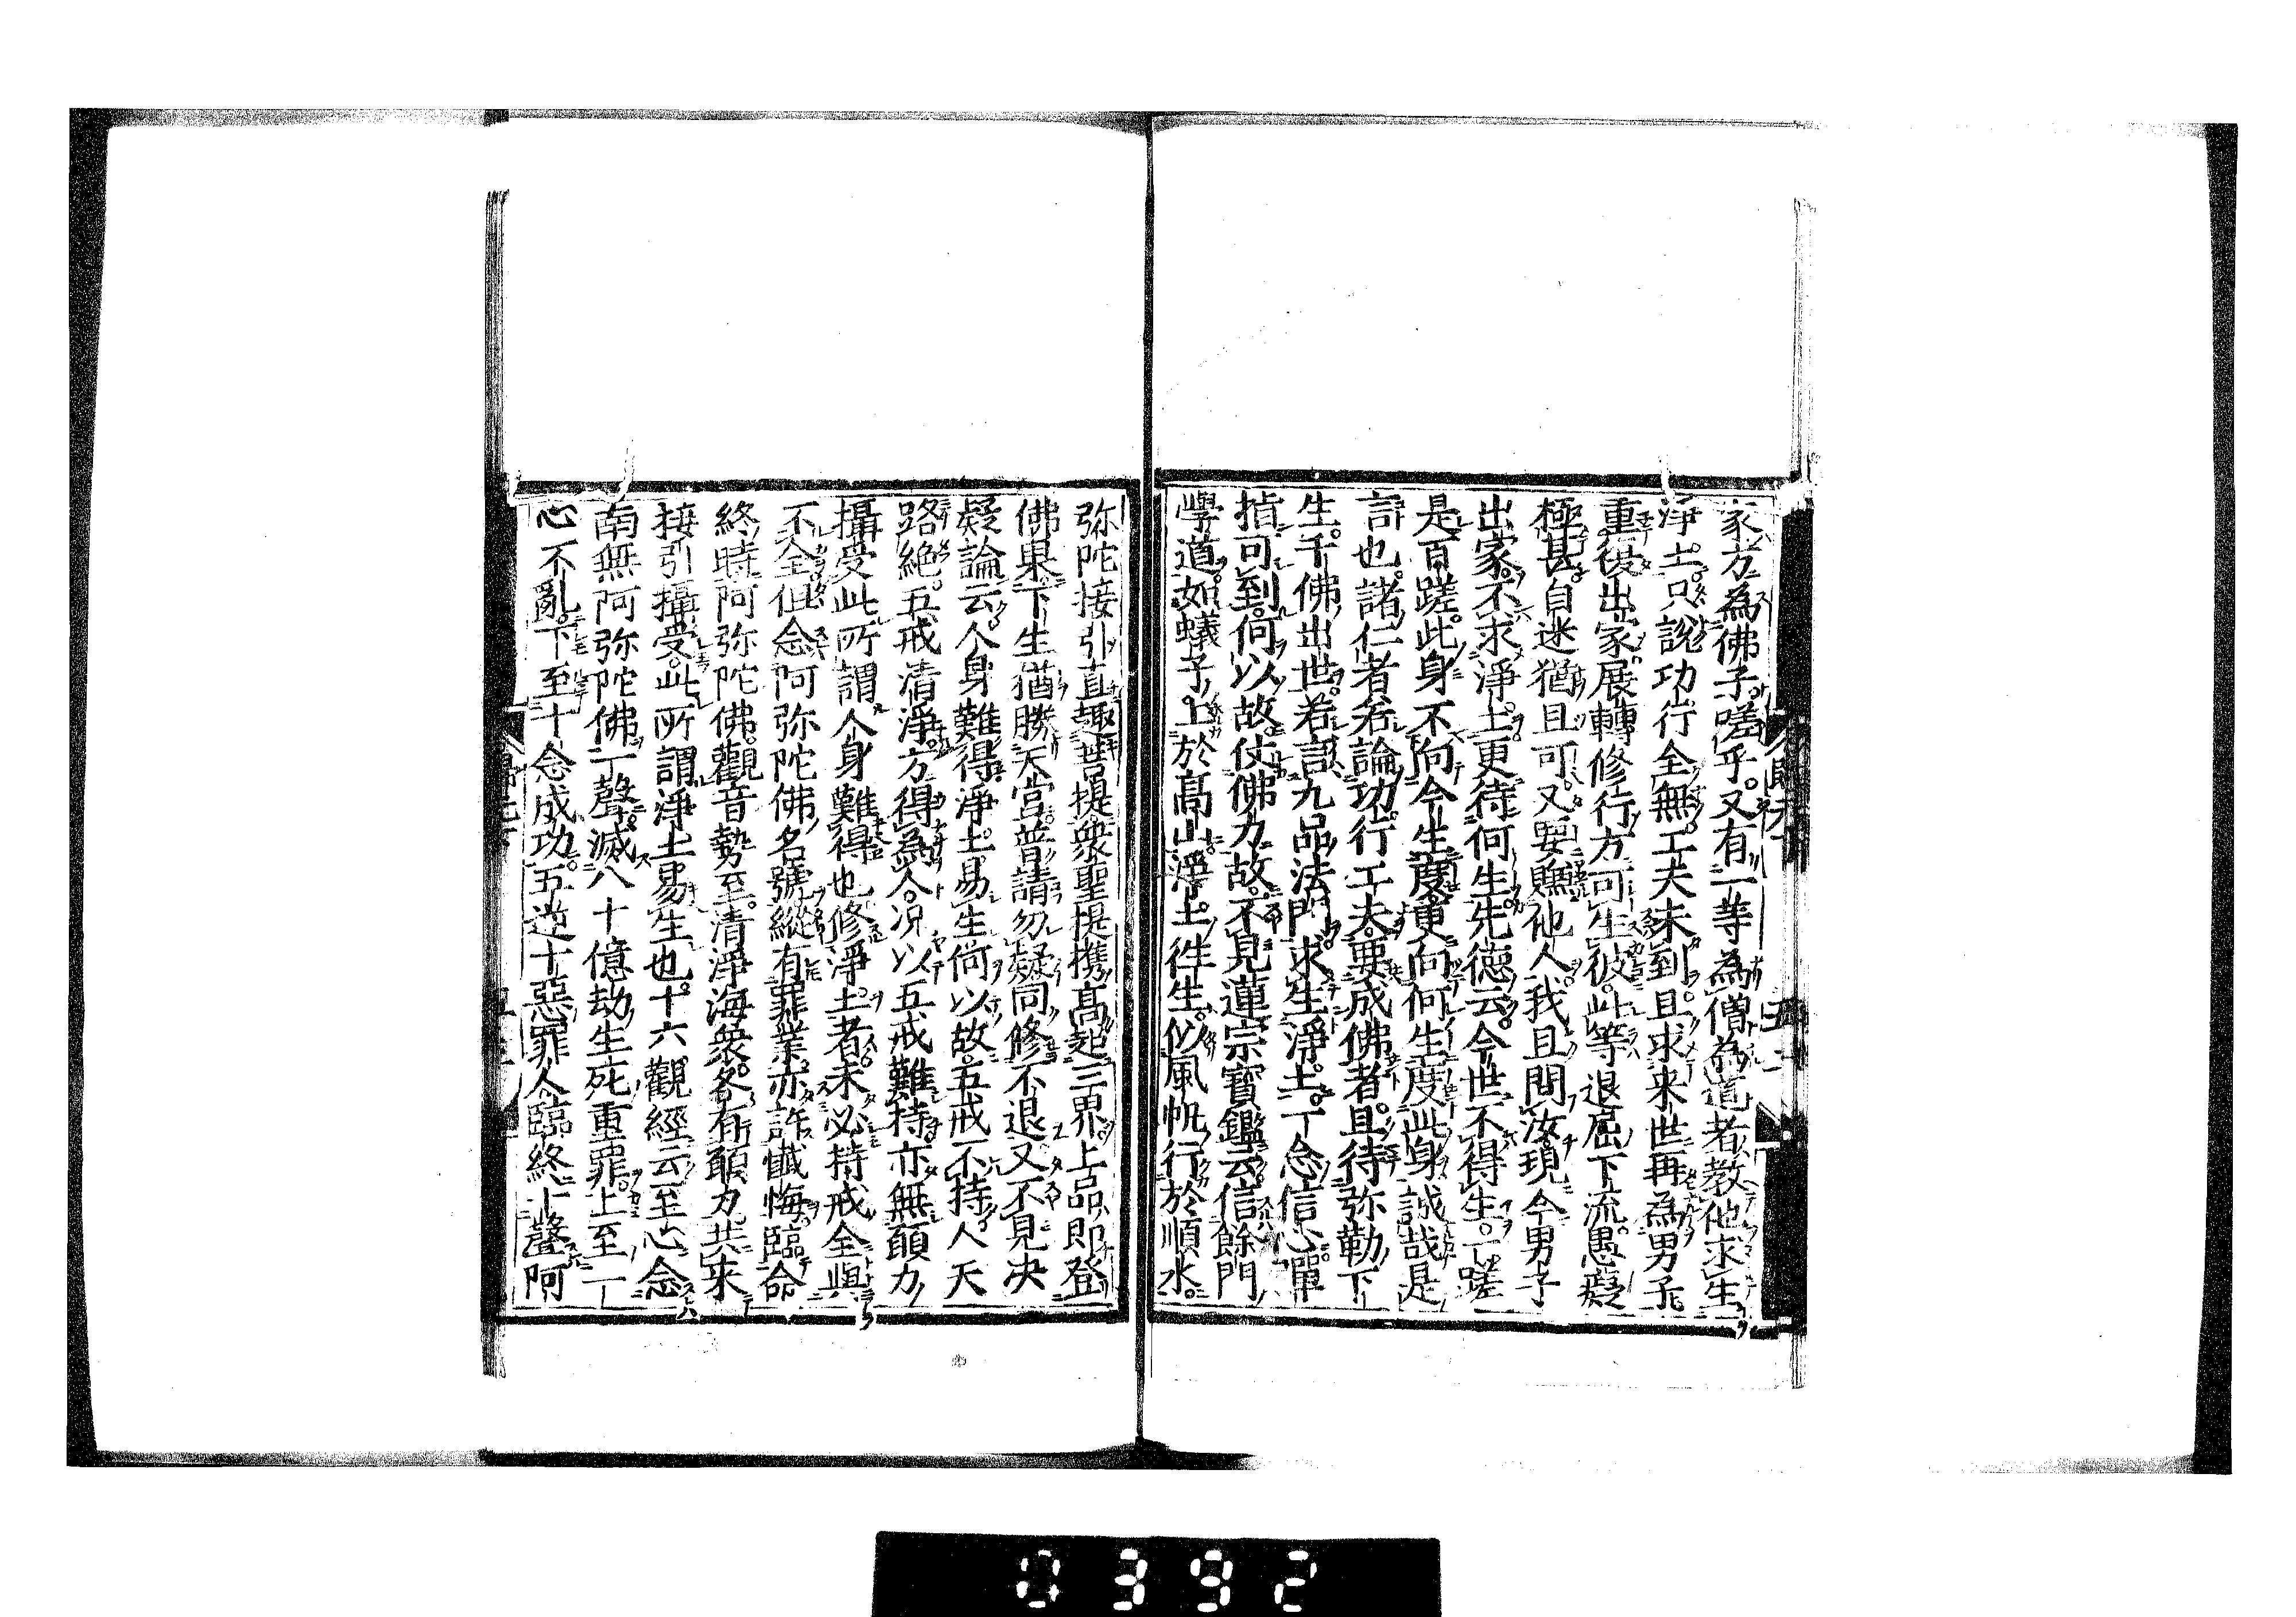 家方為佛子。嗟乎。又有一等為僧為道者教他求生
淨土。只說功行全無。工夫未到。且求来世再為男子
重復出家。展轉修行。方可生彼。此等退屈下流。愚癡
極甚。自迷猶且可。又要賺他人。我且問汝。現今男子
出家。不求淨土。更待何生。先德云。今世不得生。一蹉
是百蹉。此身不向今生度。更向何生度此身。誠哉是
言也。諸仁者若論功行工夫。要成佛者。且待弥勒下
生。千佛出世。若言九品法門。求生淨土。一念信心單
指可到。何以故。仗佛力故。不見蓮宗寶鑑云信餘門
學道。如蟻子。上於高山。淨土往生。似風帆行於順水。
弥陀接引直趣菩提衆聖提携高超三界上品即登
佛果。下生猶勝天宫普請勿疑同修不退又不見决
疑論云人身難得淨土易生何以故。五戒不持。人天
路絶。五戒清淨。方得為人。况以五戒難持亦無願力
攝受此所謂人身難得也修淨土者未必持戒全與
不全但念阿弥陀佛名號縱有罪業亦許懺悔臨命
終時阿弥陀佛。觀音勢至。清淨海衆。各有願力共來
接引攝受。此所謂淨土易生也。十六觀經云至心念
南無阿弥陀佛一聲。滅八十億劫生死重罪。上至一
心不亂。下至十念成功。五逆十惡罪人臨終十聲阿
0392